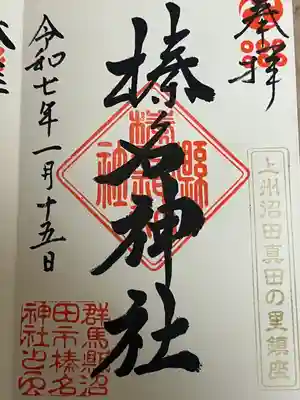 奉拝
上州沼田真田の里鎮座
榛名神社
令和七年一月十五日
群馬縣沼
田市榛名
神社之印